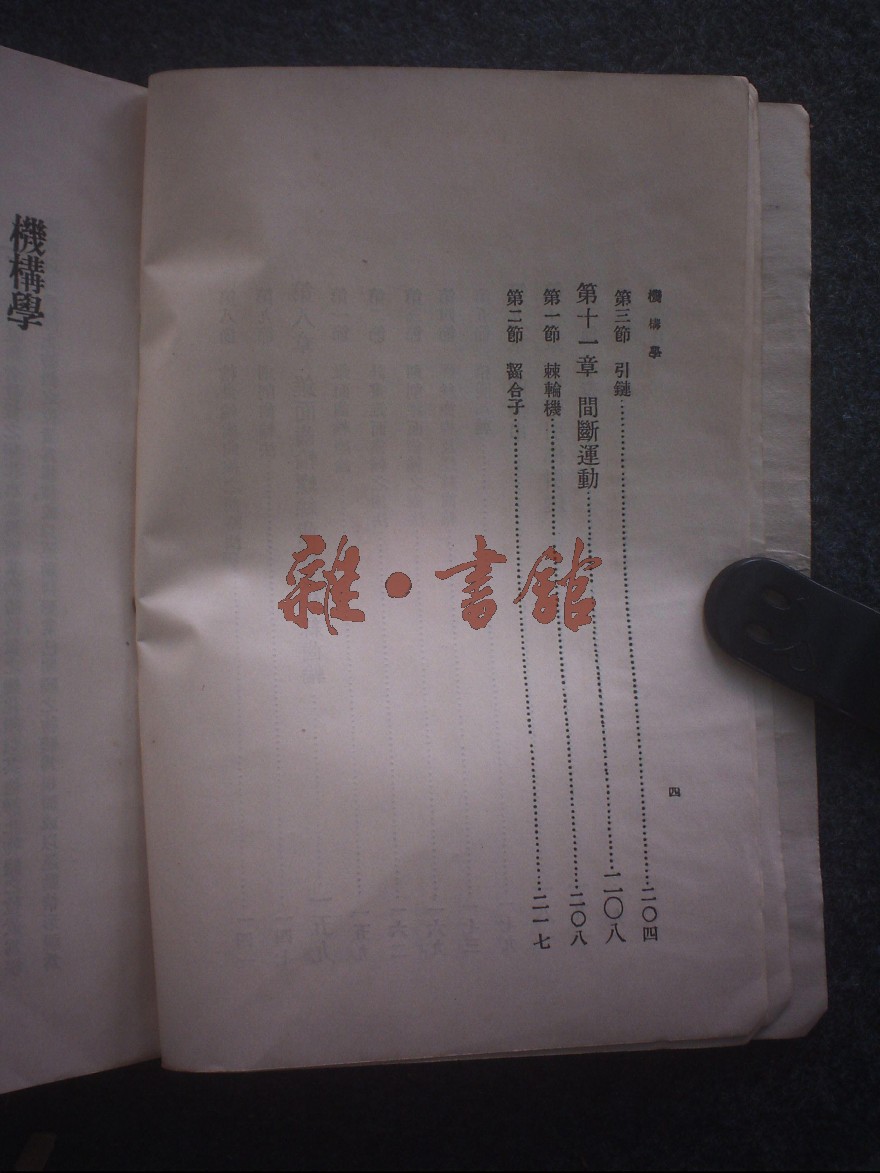 機構學
四
第三節 引鏈……二〇四
第十一章 間斷運動……二〇八
第一節 棘輪機……二〇八
第二節 合子……二一七
機構學
雜·書館